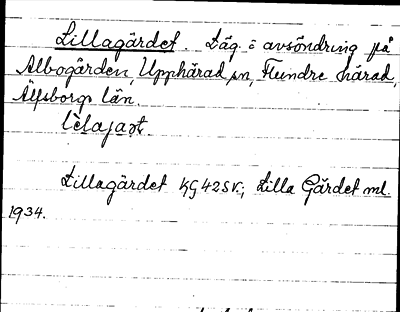 Lillagärdet. Läg. o avsöndring på
Albogården, Upphärad sn, Flundre härad,
Älfsborgs län.
Lillagärdet KG42SV.; Lilla Gärdet ml.
1934.